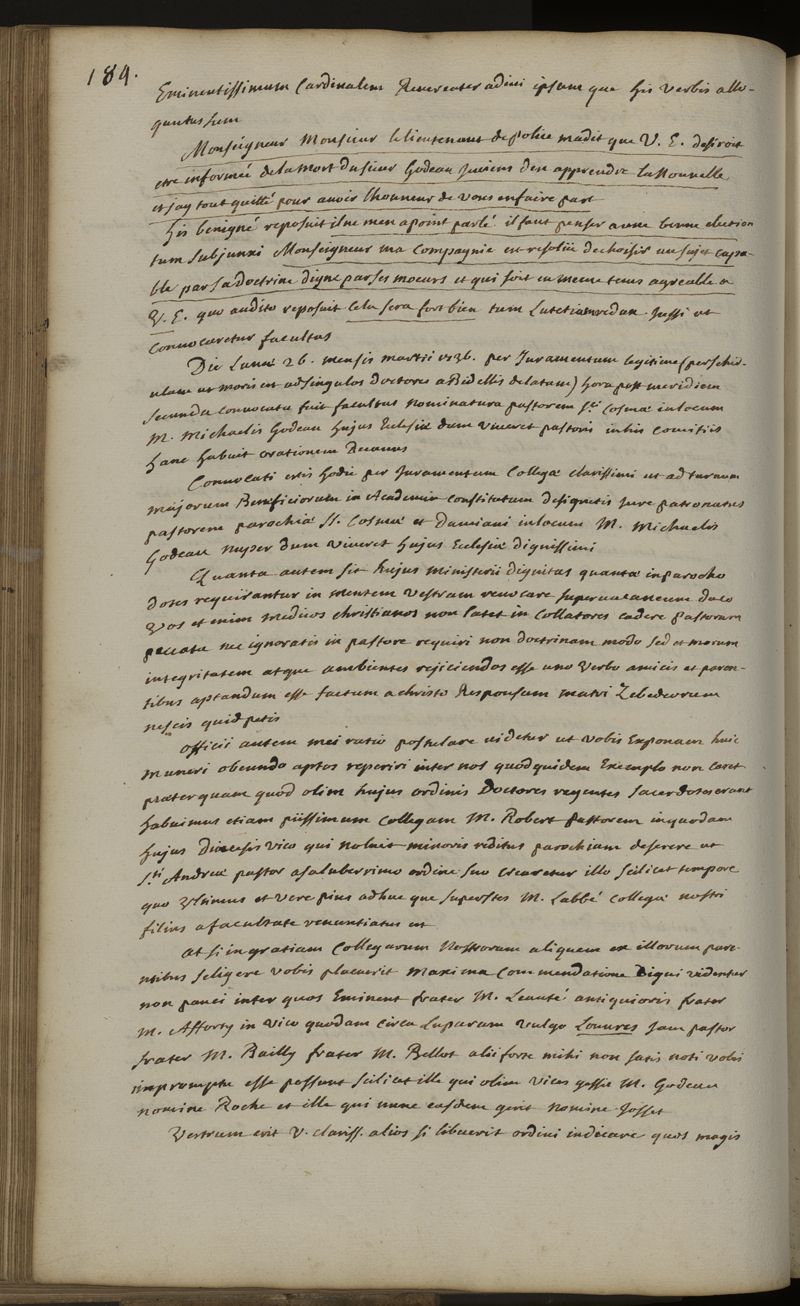 184.
Eminentissimum Cardinalem Reverenter adivi ipsum que his verbis allo-
quutus sum
Monseigneur Monsieur le lieutenant de police madit que V. E. desiroit
etre informée de la mort du sieur Godeau je viens d'en apprendre la Nouvelle
et jay tout quitté pour avoir lhonneur de vous en faire part
his benigné reposuit il ne men a point parlé il faut penser a une bonne election
tum subjunxi Monseigneur ma Compagnie est resolüe de choisir un sujet capa-
ble par sa doctrine digne par ses moeurs et qui soit en meme tems agreable a
V. E. quo audito reposuit Cela sera fort bien tum Lutetiam redux Jussi ut
convocaretur facultas
Die Lunæ 26. mensis martii 1736. per Juramentum legitime (per sched-
ulam ut moris est ad singulos doctores a Bidellis delatam) hora post meridiem
secunda convocata fuit facultas nominatura pastorem Sti. Cosmæ in locum
M. Michaelis Godeau hujus Eclesiæ dum viveret pastoris in his Comitiis
hanc habuit orationem Decanus
Convocati estis hodie per Juramentum Collegæ clarissimi ut ad turnum
majorum Beneficiorum in Academia constitutum designetis jure patronatus
pastorem parochiæ SS. Cosmæ et Damiani in locum M. Michaelis
Godeau nuper dum viveret hujus Eclesiæ dignissimi
Quanta autem sit hujus ministerii dignitas quantæ in parocho
dotes requirantur in mentem vestram revocare supervacaneum duco
Vos et enim medicos christianos non latet in Collatores cadere pastorum
peccata nec ignoratis in pastore requiri non doctrinam modo sed et morum
integritatem atque ambientes rejiciendos esse uno verbo amicis et paren-
tibus aptandum esse factum a christo Responsum matri Zebedeorum
nescis quid petis
officii autem mei ratio postulare videtur ut vobis Exponam huic
muneri obeundo aptos reperiri inter nos quod quidem Exemplo non caret
præterquam quod olim hujus ordinis Doctores regentes sacerdotes erant
habuimus etiam piissimum Collegam M. Robert pastorem in quodam
hujus Diœcesis vico qui noluit minoris reditus parochiam deserere ut
Sti. Andreæ pastor a saluberrimo ordine suo crearetur illo scilicet tempore
quo et vere pius adhuc que superstes M. Labbé Collegæ nostri
filius a facultate renuntiatus est
at si in gratiam Collegarum Nostrorum aliquem ex illorum pare-
ntibus seligere vobis placuerit maxima Commendatione Digni videntur
non pauci inter quos Eminent frater M. Leauté antiquioris frater
M. Afforty in vico quodam circa Luparam vulgo Louvres jam pastor
frater M. Bailly frater M. Bellot alii forte mihi non satis noti vobis
impromptu esse possunt scilicet ille qui olim vices gessit M. Godeau
nomine Roche et ille qui nunc easdem gerit nomine Josset
Vestrum erit V. clariss. alios si libuerit ordini indicare quos magis